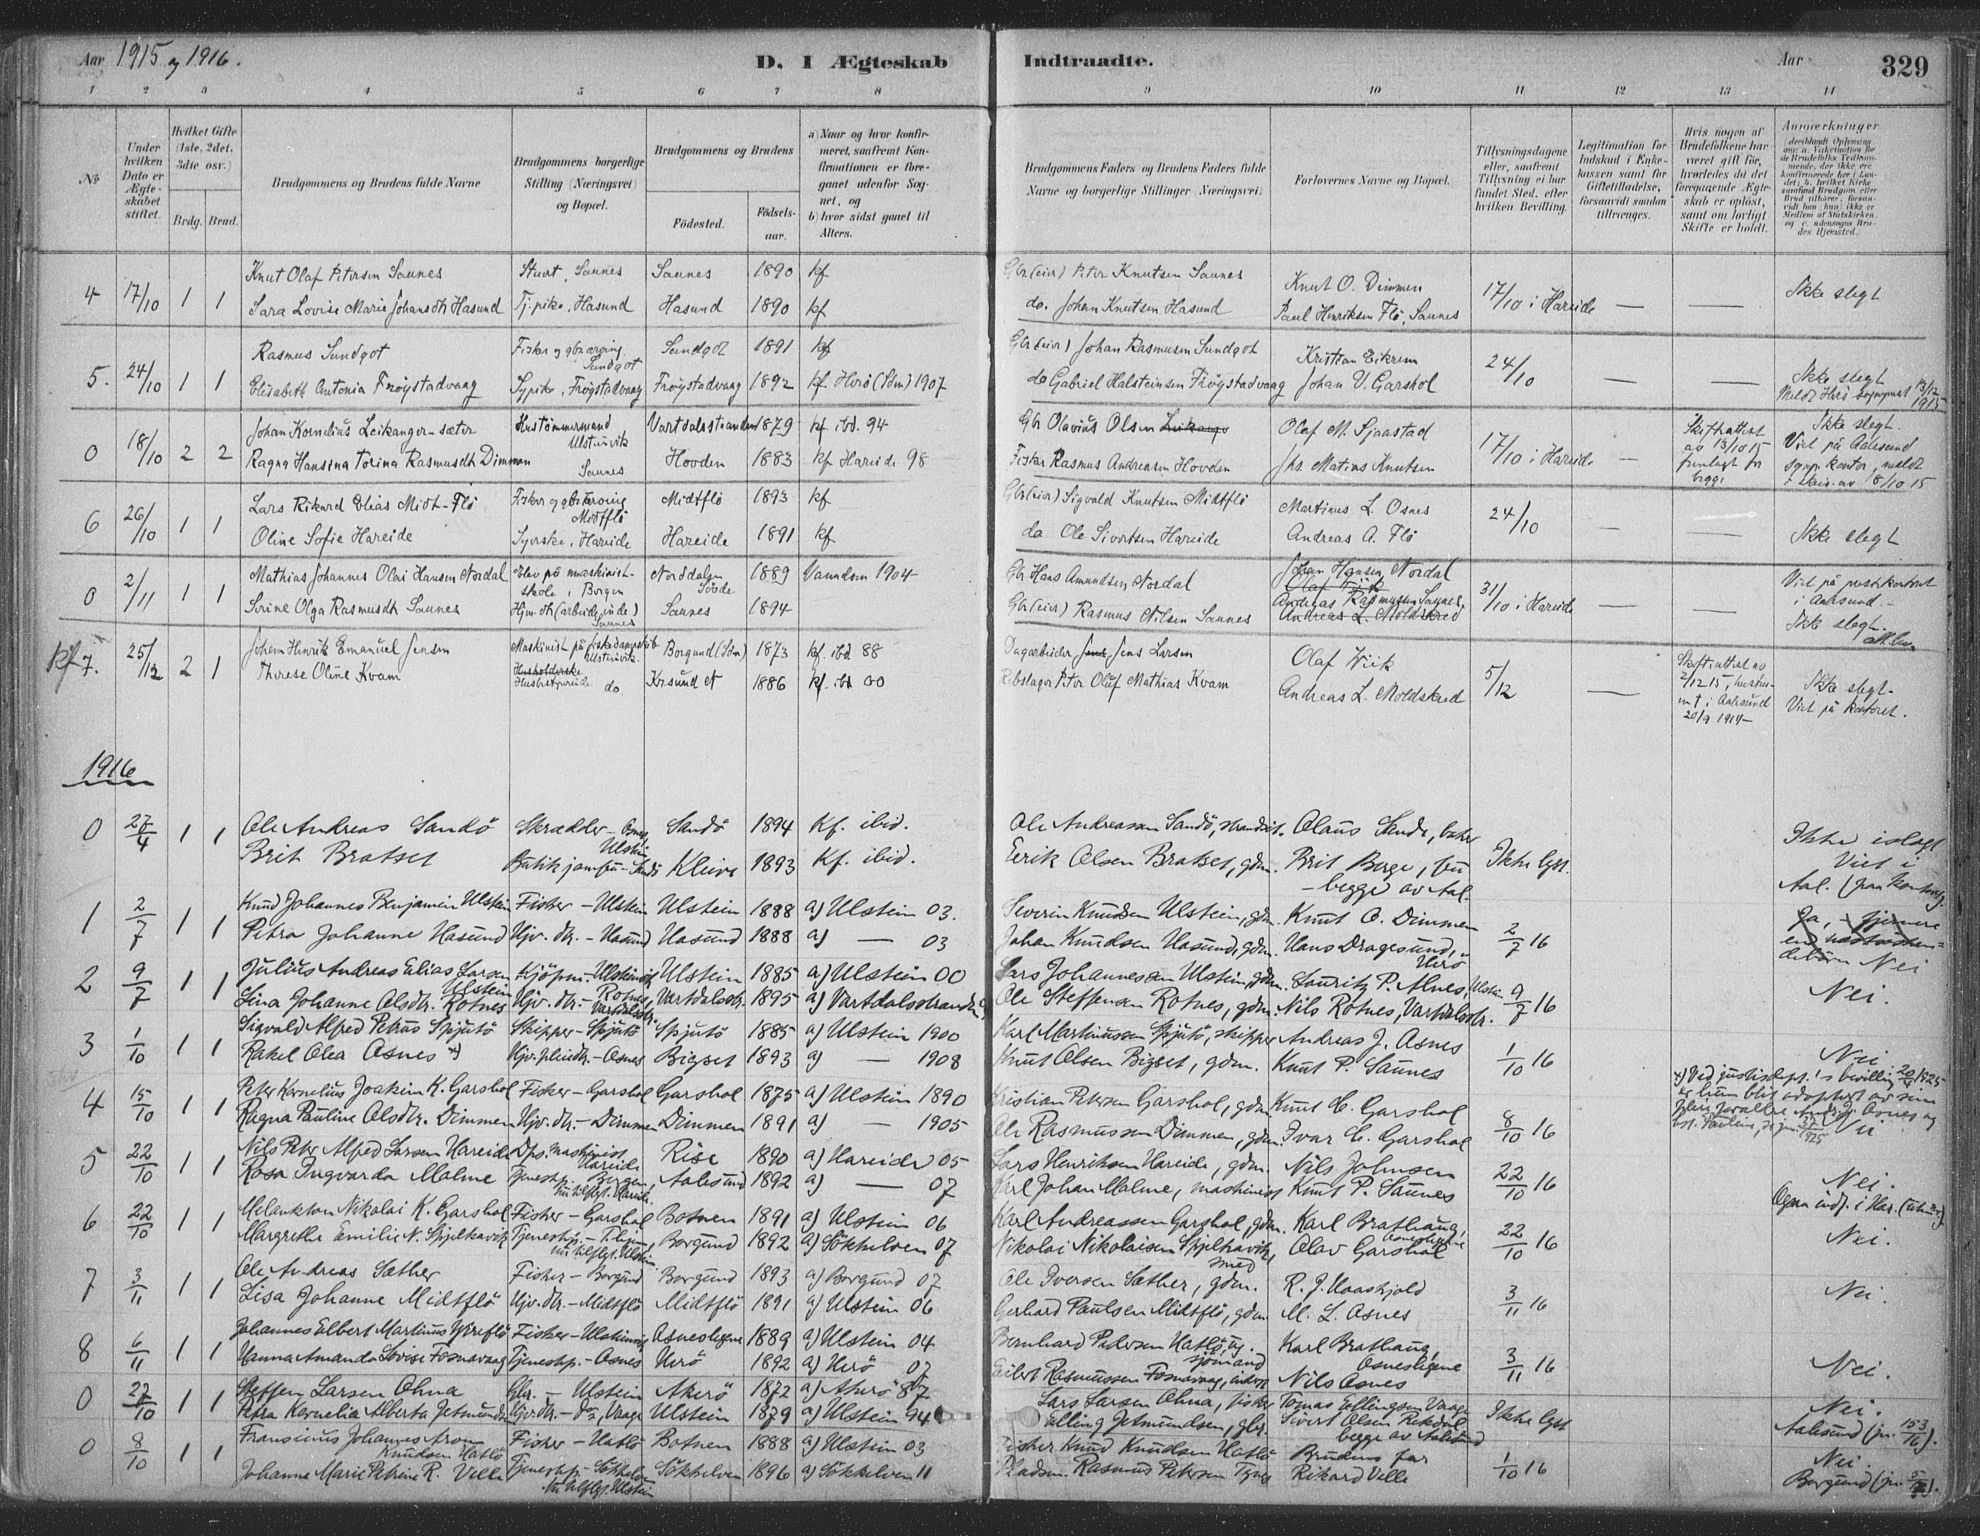 Aar 1915 og 1916.
D. I Ægteskab Indtraadte.
Aar 329
1 2 3 4 5 6 7 8 9 10 11 12 13 14
No
Under hvilken Dato er Ægteskabet stiftet.
Hvilket Gifte (1ste, 2det, 3die osv.)
Brdg. Brud.
Brudgommens og Brudens fulde Navne
Brudgommens borgerlige Stilling (Næringsvei) og Bopæl.
Brudgommens og Brudens
Fødested.
Fødsels-aar.
a) Naar og hvor konfirmeret, saafremt Konfirmationen er foregaaet udenfor Sognet, og
b) hvor sidst gaaet til Alters.
Brudgommens Faders og Brudens Faders fulde Navne og borgerlige Stillinger (Næringsvei)
Forlovernes Navne og Bopæl.
Tillysningsdagene eller, saafremt Tillysning ei har fundet Sted, efter hvilken Bevilling.
Legitimation for Indskud i Enkekassen samt for Giftetilladelse, forsaavidt saadan tiltrænges.
Hvis nogen af Brudefolkene har været gift før, hvorledes da det foregaaende Ægteskab er opløst, samt om lovligt Skifte er holdt.
Anmerkninger
4 17/10 1 1 Knut Olaf Petersen Saunes Stuert, Saunes Saunes 1890 kf Gbr(eier) Peter Knutsen Saunes Knut O. Dimmen 17/10 i Hareide — — Ikke slegt
Sara Lovise Marie Johansdtr Hasund Tj.pike, Hasund Hasund 1890 kf do. Johan Knutsen Hasund Paul Henriksen Flø, Saunes
5. 24/10 1 1 Rasmus Sundgot Fisker og gbræring Sundgot Sundgot 1891 kf Gbr(eier) Johan Rasmusen Sundgot Kristian Eikrem 24/10 — — Ikke slegt
Elisabeth Antonia Frøystadvaag Sypike, Frøystadvaag Frøystadvaag 1892 kf Herø (Søn) 1907 do Gabriel Halsteinsen Frøystadvaag Johan V. Garshol Meldt Herø sogneprest 13/12 1915
0 18/10 2 2 Johan Kornelius Leikanger-sæter Hustømmermand Ulstenvik Vartdalsstranden 1879 kf ibd. 94 Gbr Olavius Olsen Leikanger Olaf M. Sjaastad 17/10 i Hareide — Skifteattest av 13/10 15 fremlagt for begge Ikke slegt. Viet på Aalesund
Ragna Hansina Torina Rasmusdt Dimmen Saunes Hovden 1883 kf Hareide 98 Fisker Rasmus Andreasen Hovden Jhs Matias Knutsen
6 26/10 1 1 Lars Rikard Elias Midt-Flø Fisker og gbrærving Midtflø Midtflø 1893 kf Gbr(eier) Sigvald Knutsen Midtflø Martinus L. Osnes 24/10 — Ikke slegt
Oline Sofie Hareide Syerske, Hareide Hareide 1891 kf do Ole Sivertsen Hareide Andreas A. Flø
0 2/11 1 1 Mathias Johannes Olai Hansen Nordal Elev på maskinistskole i Bergen Norddalen 1889 1904 Gbr Hans Amundsen Nordal Johan Hansen Nordal 31/10 i Hareide — — Viet på i Aalesund. Ikke slegt.
Serine Olga Rasmusdt Saunes Hjm.dt (arbeide inde) Saunes Saunes 1894 Gbr(eier) Rasmus Nilsen Saunes Andreas Rasmusen Saunes Andreas L. Moldskred
kf 7. 25/12 2 1 Johan Henrik Emanuel Jensen Maskinist på fiskedampskib Ulstenvik Borgund (Søn) 1873 kf. ibd 88 Dagarbeider Jens Larsen Olaf Wiik 5/12 — Skifteattest av 2/12 15, i Aalesund 20/9 1914 Ikke slegt. Viet på kontoret.
Therese Oline Kvam Husbestyrerinde do Krsund N 1886 kf. ibd 00 Rebslager Peter Oluf Mathias Kvam Andreas L. Moldskred
1916
0 27/4 1 1 Ole Andreas Sandø Skrædder – Osnes, Ulstein Sandø 1894 Kf. ibid. Ole Andreassen Sandø, strands. Olaus Sande, Ikke lyst. Ikke i slegt Viet i Aal.
Brit Bratset Butikjomfru – Kleive 1893 Kf. ibid. Eerik Olsen Bratset, gdm. Brit Berge, – begge av Aal.
1 2/7 1 1 Knud Johannes Benjamin Ulstein Fisker – Ulstein Ulstein 1888 a) Ulstein 03. Severin Knudsen Ulstein, gdm. Knut O. Dimmen 2/7 16 Ja, fjernere end Nei
Petra Johanne Hasund Hjv. dtr. – Hasund Hasund 1888 a) — 03 Johan Knudsen Hasund, gdm. Hans Dragesund, Herø
2 9/7 1 1 Julius Andreas Elias Larsen Ulstein Kjøpm. – Ulstein Ulstein 1885 a) Ulstein 00 Lars Johannessen Ulstein, gdm. Lauritz P. Alnes, Ulstein 9/7 16 Nei.
Lina Johanne Olsdtr. Rotnes Hjv. dtr. – Rotnes, Vartdalsstr. Vartdalsstr. 1895 a) Vartdalsstranden Ole Steffensen Rotnes, gdm. Nils Rotnes, Vartdalsstr.
3 1/10 1 1 Sigvald Alfred Petrus Spjutø Skipper – Spjutø Spjutø 1885 a) Ulstein 1900 Karl Martinussen Spjutø, skipper Andreas J. Osnes 1/10 16 Nei
Rakel Olea Osnes *) Hjv. pleiedtr. – Osnes Bigset 1893 a) — 1908 Knut Olsen Bigset, gdm. Knut P. Saunes *) Ved justisdept.'s bevilling 20/ 1925 er hun blit adoptert av sine Osnes og
4 15/10 1 1 Peter Kornelius Joakim K. Garshol Fisker – Garshol Garshol 1875 a) Ulstein 1890 Kristian Petersen Garshol, gdm. Knut C. Garshol 8/10 16 Nei
Ragna Pauline Olsdtr. Dimmen Hjv. dtr. – Dimmen Dimmen 1891 a) — 1905 Ole Rasmussen Dimmen, gdm. Ivar C. Garshol
5 22/10 1 1 Nils Peter Alfred Larsen Hareide Dps. maskinist Hareide Rise 1890 a) Hareide 05 Lars Henriksen Hareide, gdm. Nils Johnsen 22/10 16 Nei.
Rosa Ingvarda Malme Tjenestp. – Bergen, nu tilflyt. Hareide Aalesund 1892 a) — 07 Karl Johan Malme, maskinist Knut P. Saunes
6 22/10 1 1 Melankton Nikolai K. Garshol Fisker – Garshol Botnen 1891 a) Ulstein 06 Karl Andreassen Garshol, gdm. Karl Brathaug, Osneslegene 22/10 16 Nei.
Margrethe Emilie N. Spjelkavik Tjenestp. – nu tilflyt. Ulstein Borgund 1892 a) Søkkelven 07 Nikolai Nikolaisen Spjelkavik, smed Olav Garshol
7 3/11 1 1 Ole Andreas Sæther Fisker – Borgund Borgund 1893 a) Borgund 07 Ole Iversen Sæther, gdm. R. J. Haaskjold 3/11 16 Nei.
Lisa Johanne Midtflø Hjv. dtr. – Midtflø Midtflø 1891 a) Ulstein 06 Gerhard Paulsen Midtflø, gdm. M. L. Osnes
8 6/11 1 1 Johannes Elbert Martinus Ytreflø Fisker – Ulsteinvik Osneslegene 1889 a) Ulstein 04 Bernhard Pedersen Hatlø, sjømand Karl Brathaug, Osneslegene 3/11 16 Nei.
Hanna Amanda Lovise Fosnavaag Tjenestp. – Osnes Herø 1892 a) Herø 07 Eilert Rasmussen Fosnavaag, Nils Osnes
0 22/10 1 1 Steffen Larsen Ohna Glr. – Ulstein Akerø 1872 a) Akerø 87 Lars Larsen Ohna, fisker Tomas Ellingsen Vaage Ikke lyst Nei.
Petra Kornelia Alberta Jetmundsd. Hjv. dtr. – do, Vaage Ulstein 1879 a) Ulstein 94 Elling Jetmundsen, glr. Sivert Olsen Rekdal begge av Aalesund Aalesund (jn. 153/16).
0 8/10 1 1 Fransinus Johannes Aron Knudsen Hatlø Fisker – Hatlø Botnen 1888 a) Ulstein 03 Fisker Knud Knudsen Hatlø Brudens far 1/10 16 Nei.
Johanna Marie Petrine R. Velle Tjenestp. – Søkkelven nu tilflyt. Ulstein Søkkelven 1896 a) Søkkelven 11 Pladsm. Rasmus Petersen Rikard Velle Borgund